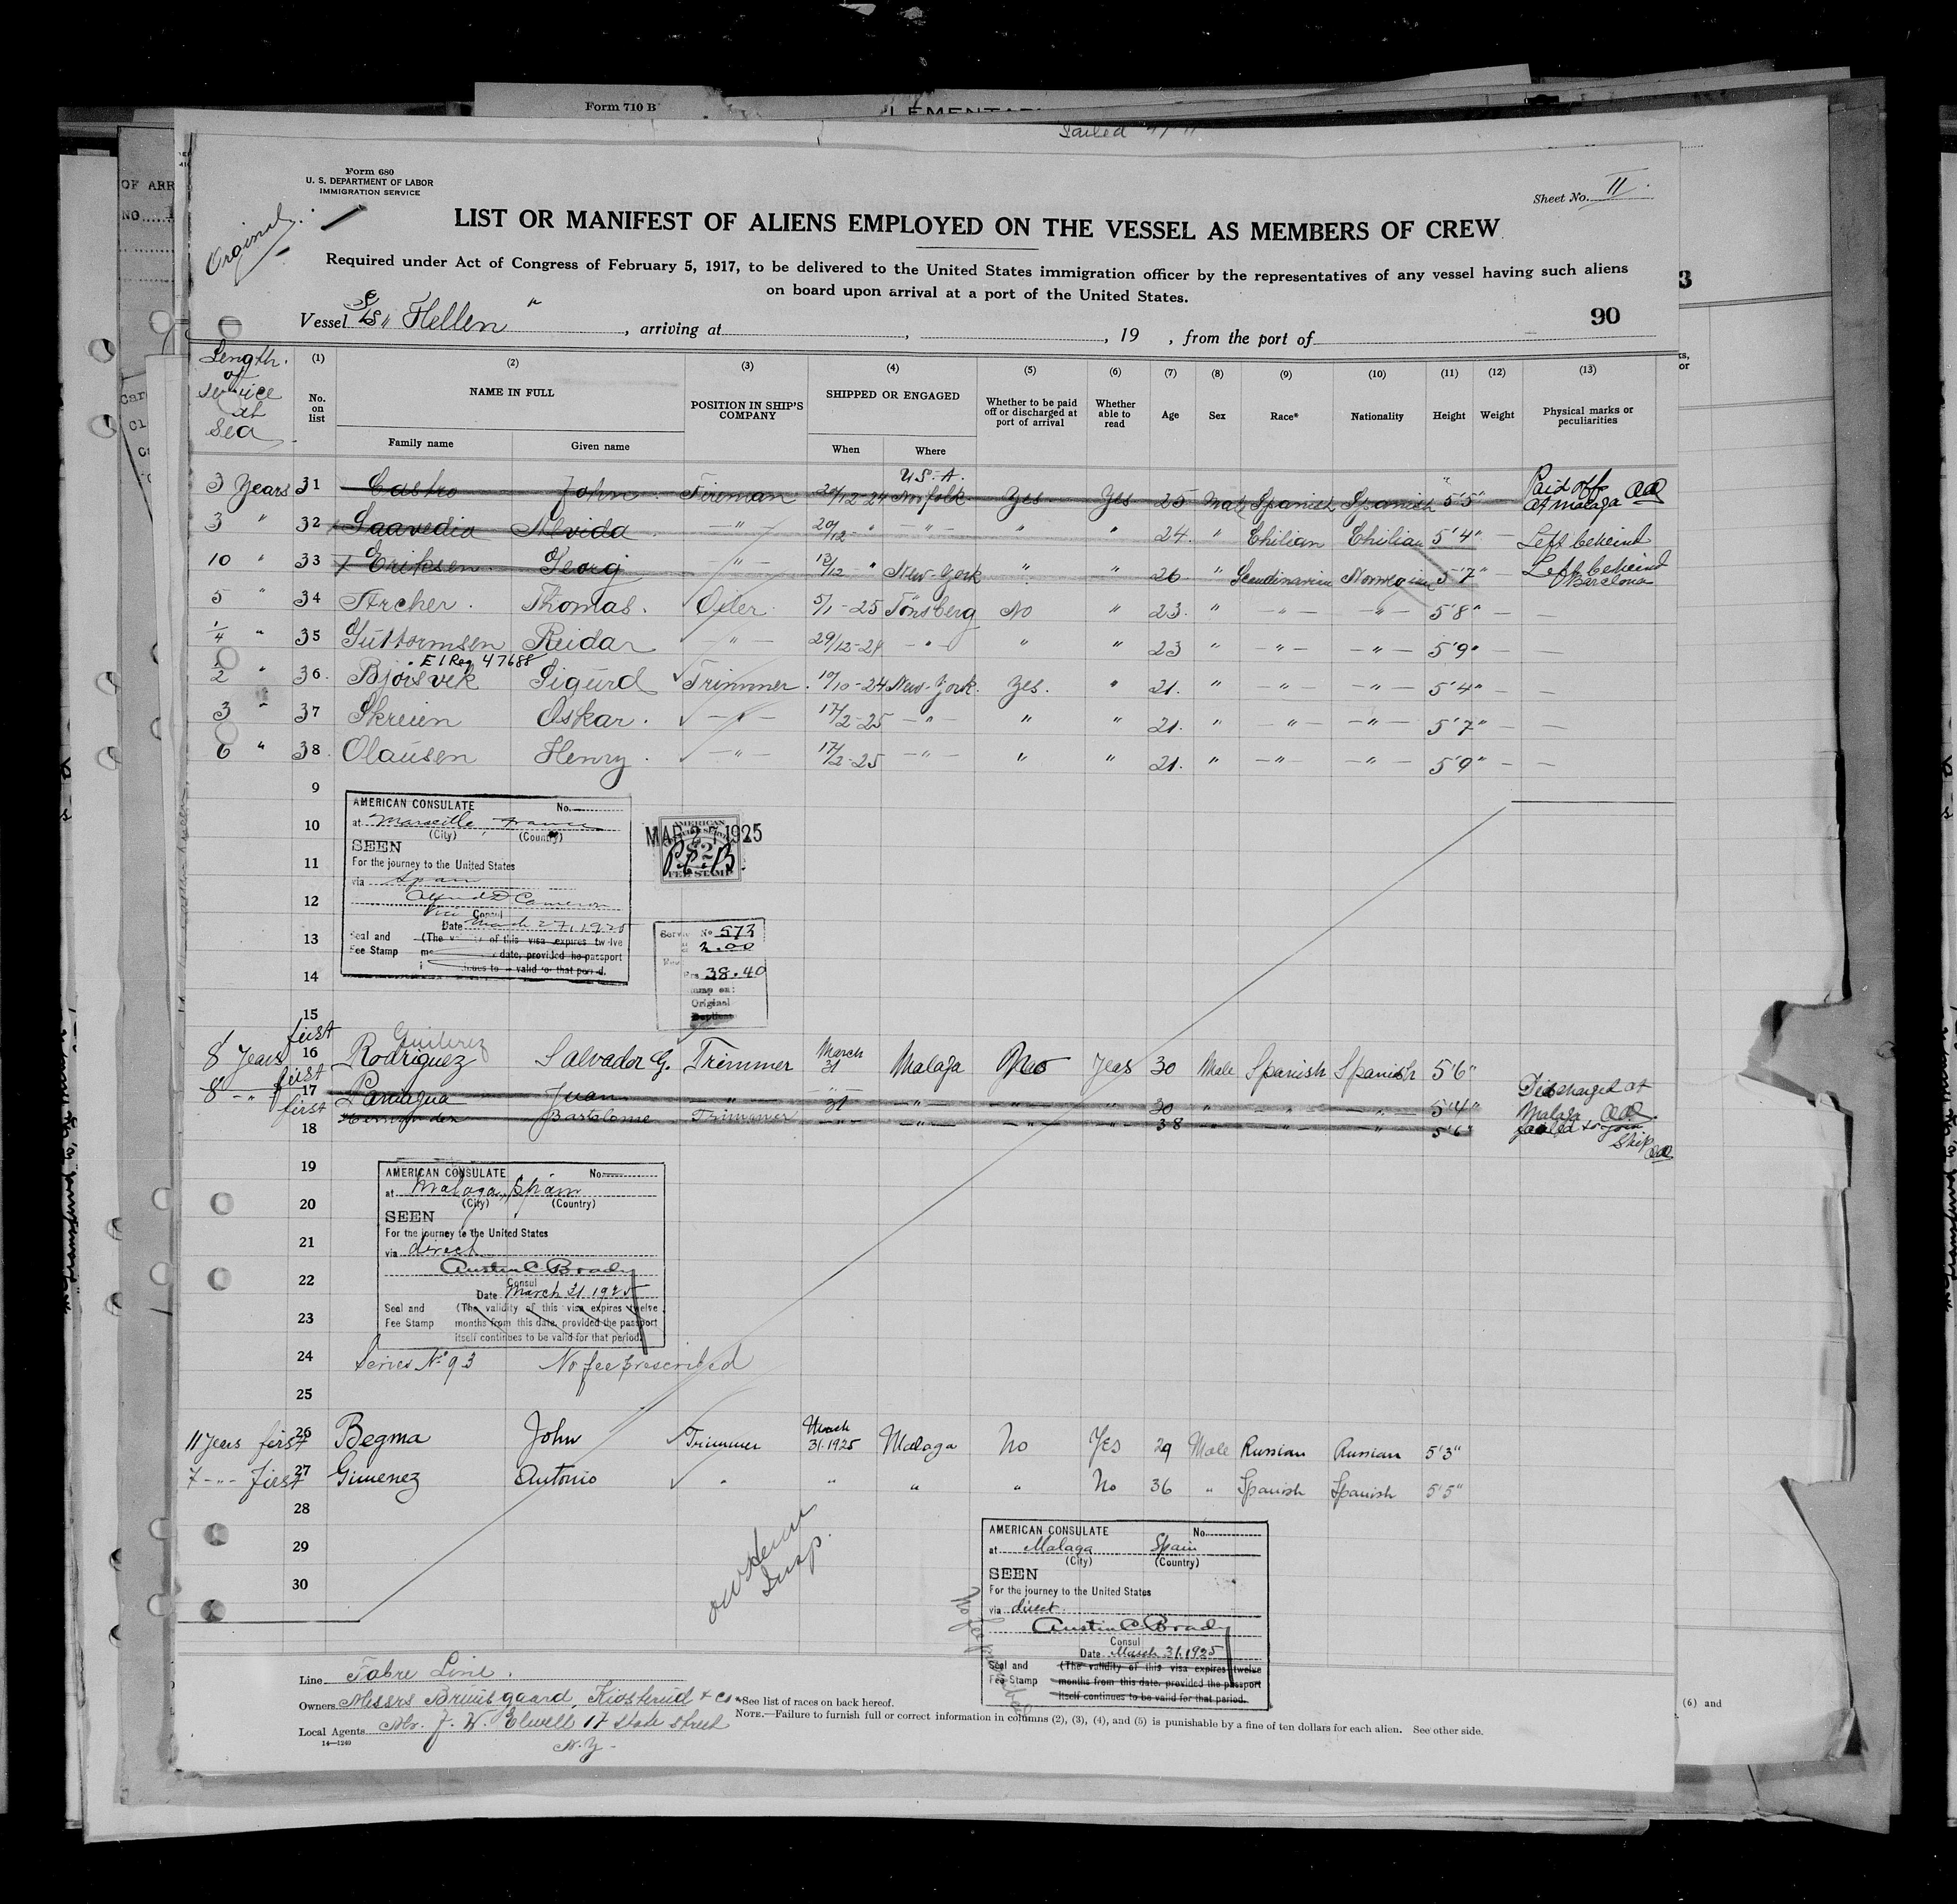 Form 710 B
Sailed
Form 680
U. S. DEPARTMENT OF LABOR
IMMIGRATION SERVICE
Sheet No. II.
Original
LIST OR MANIFEST OF ALIENS EMPLOYED ON THE VESSEL AS MEMBERS OF CREW
Required under Act of Congress of February 5, 1917, to be delivered to the United States immigration officer by the representatives of any vessel having such aliens
on board upon arrival at a port of the United States.
90
Vessel S/S "Hellen" , arriving at , , 19 , from the port of
Length of service at sea
(1) (2) (3) (4) (5) (6) (7) (8) (9) (10) (11) (12) (13)
No. on list NAME IN FULL POSITION IN SHIP'S COMPANY SHIPPED OR ENGAGED Whether to be paid off or discharged at port of arrival Whether able to read Age Sex Race* Nationality Height Weight Physical marks or peculiarities
Family name Given name When Where
U.S.A.
3 Years 31 Castro John Fireman 20/12-24 Norfolk Yes Yes 25 Male Spanish Spanish 5'5" Paid off at Malaga
3 " 32 Saavedia Alvida —"— 20/12 " —"— " " 24 " Chilian Chilian 5'4" — Left behind
10 " 33 Eriksen Georg —"— 13/12 " New-York " " 26 " Scandinavian Norwegian 5'7" — Left behind Barclona
5 " 34 Archer Thomas. Oiler 5/1-25 Tönsberg No " 23. " —"— —"— 5'8" — —
1/4 " 35 Guttormsen Reidar —"— 29/12-24 —"— " " 23 " —"— —"— 5'9" — —
El Reg 47688
1/2 " 36. Bjoisvek Sigurd Trimmer. 10/10-24 New-York. Yes. " 21. " —"— —"— 5'4" — —
3 " 37 Skreien Oskar. —"— 17/2-25 —"— " " 21. " —"— —"— 5'7" — —
6 " 38. Olausen Henry. —"— 17/2-25 —"— " " 21. " —"— —"— 5'9" — —
9
10
11
12
13
14
15
AMERICAN CONSULATE No.
at Marseille, France
(City) (Country)
SEEN
For the journey to the United States
via Spain
Alfred D Cameron
Vice Consul
Date March 27, 1925
Seal and Fee Stamp (The of this visa expires twelve
date, provided he passport
valid for that period.
MAR 27 1925
AMERICAN
$2
FEE STAMP
No 573
2.00
38.40
Original
8 Years first 16 Rodriguez Guiterez Salvador G. Trimmer March 31 Malaga No Yeas 30 Male Spanish Spanish 5'6"
8 -"- first 17 Paniagua Juan —"— —"— —"— 30 " —"— —"— 5'4" Discharged at Malaga
first 18 Hernandez Bartolome Trimmer 31 —"— —"— —"— 38 —"— —"— —"— 5'6" failed to join ship
19
20
21
22
23
AMERICAN CONSULATE No.
at Malaga, Spain
(City) (Country)
SEEN
For the journey to the United States
via direct
Austin C Brady
Consul
Date March 31 1925
Seal and Fee Stamp (The validity of this visa expires twelve
months from this date, provided the passport
itself continues to be valid for that period.
24 Series No 93 No fee prescribed
25
11 years first 26 Begma John Trimmer March 31.1925 Malaga No Yes 29 Male Russian Russian 5'3"
7 -"- first 27 Gimenez Antonio " " " " No 36 " Spanish Spanish 5'5"
28
29
30
Insp.
AMERICAN CONSULATE No.
at Malaga Spain
(City) (Country)
SEEN
For the journey to the United States
via direct
Austin C Brady
Consul
Date March 31.1925
Seal and Fee Stamp (The validity of this visa expires twelve
months from this date, provided the passport
itself continues to be valid for that period.
No fee prescribed
Line Fabre Line.
Owners Messrs Bruusgaard, Kiosterud & Co
*See list of races on back hereof.
Local Agents Mr. J. W. Elwell 17 State Street
N.Y.
NOTE.—Failure to furnish full or correct information in columns (2), (3), (4), and (5) is punishable by a fine of ten dollars for each alien. See other side.
14—1240
(6) and